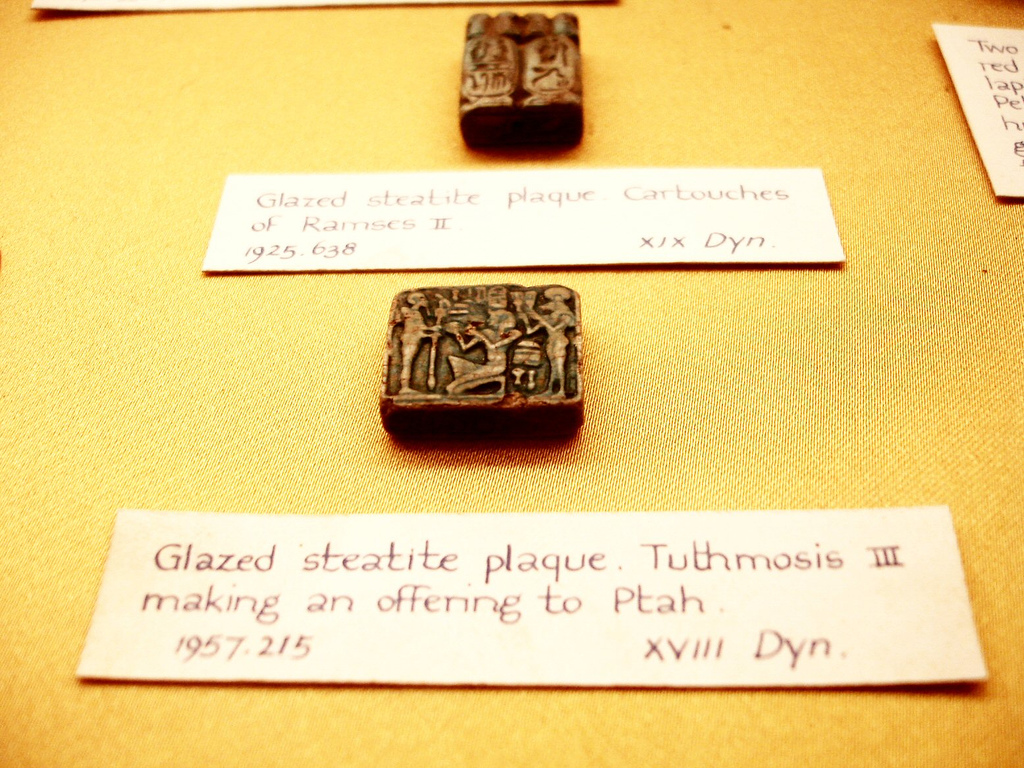 Glazed steatite plaque. Cartouches
of Ramses II.
1925.638 XIX Dyn.
Two
red
lap
Glazed steatite plaque. Tuthmosis III
making an offering to Ptah.
1957.215 XVIII Dyn.